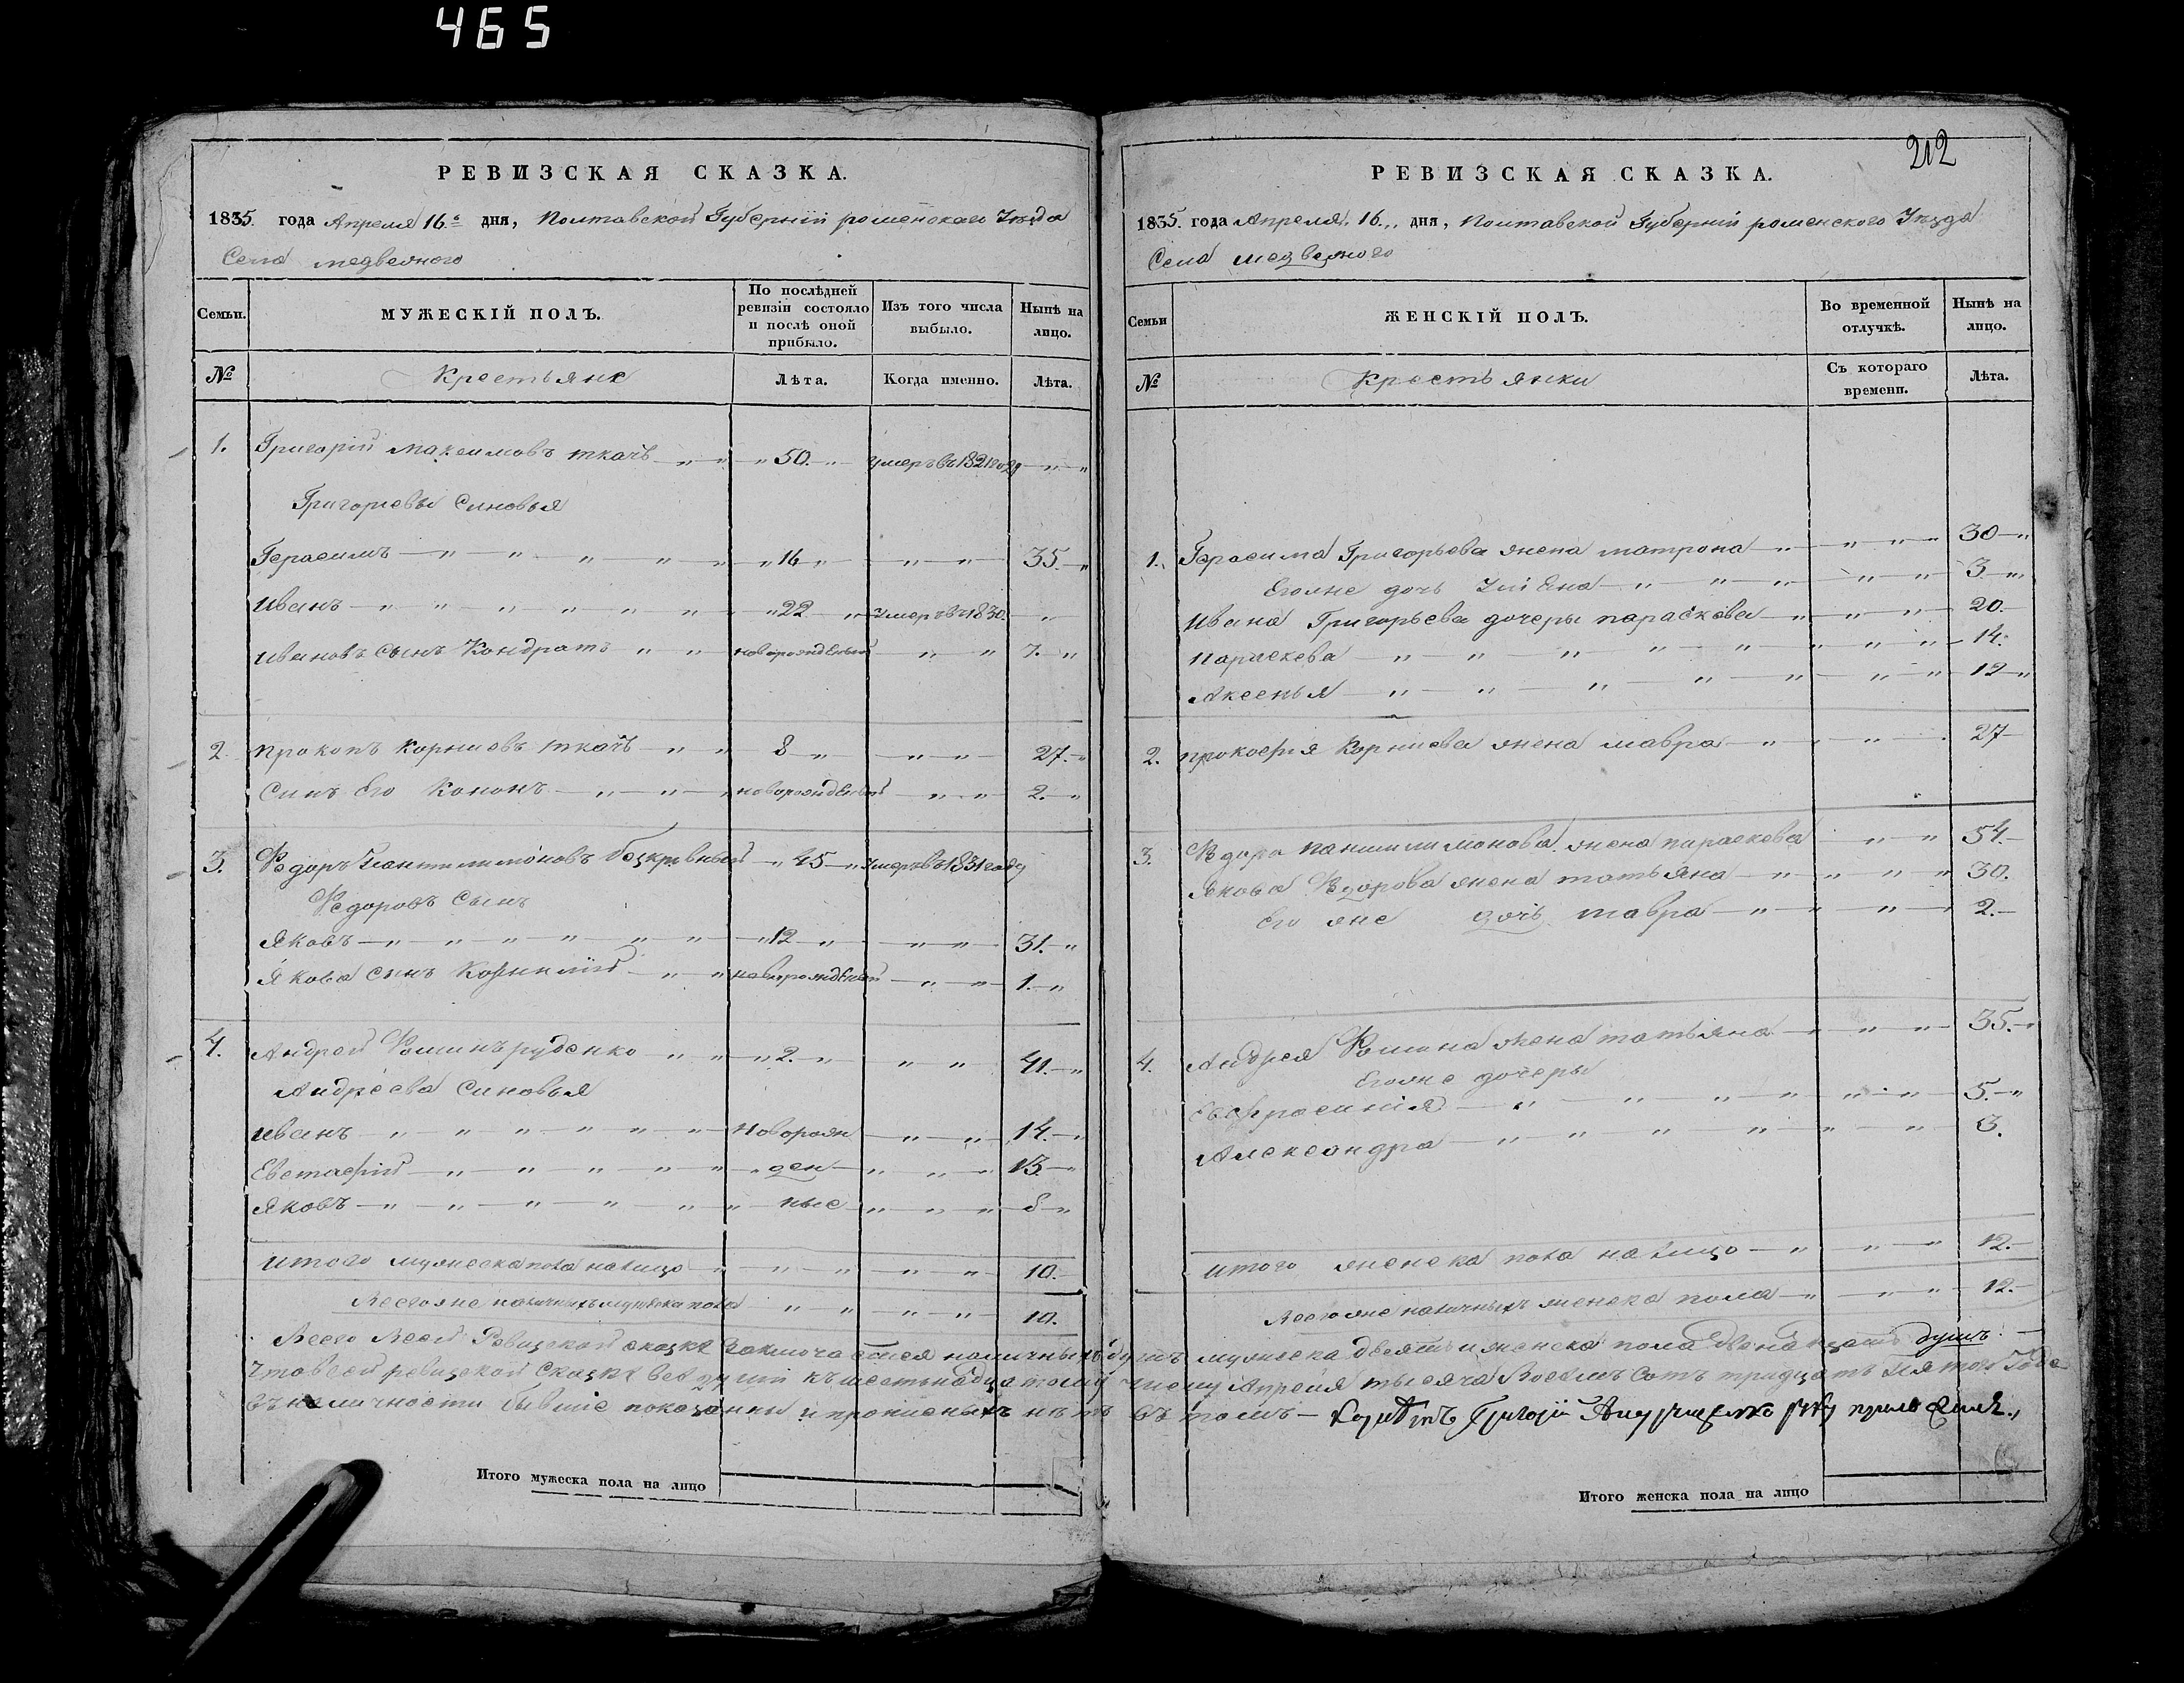 465
РЕВИЗСКАЯ СКАЗКА.
1835. года Апреля 16.е дня, Полтавской Губернии роменскаго Уезда
Села медвежого
Семьи. МУЖЕСКІЙ ПОЛЪ. По послѣдней ревизіи состояло и послѣ оной прибыло. Изъ того числа выбыло. Нынѣ на лицо.
№ Крестьяне Лѣта. Когда именно. Лѣта.
1. Григорій максимовъ ткачъ 50. умеръ въ 1821 году
Григориевы Синовья
Герасимъ 16 35.
иванъ 22 умеръ въ 1830.
ивановъ сынъ Кондратъ новорожденый 7.
2 прокопъ корниовъ ткачъ 8 27.
Синъ Его Кононъ новорожденый 2.
3. Федоръ Пантилимоновъ 45 умеръ въ 1831 году
Федоровъ Сынъ
яковъ 12 31.
якова синъ новорожденый 1.
4. Андрей Фоминъ руденко 2. 41.
Андреева Синовья
иванъ Новорож 14.
Евстафий ден 13.
яковъ ные 8
итого мужеска пола налицо 10.
Всего же наличныхъ мужеска пола 10.
Всего Всей Ревизской сказке заключается наличныхъ душъ мужеска десять и женска пола двенадцать душъ.
Что в сей ревизской Сказке все души къ шестнадцатому числу Апреля тысяча Восемь Сотъ тридцать пятого Года
въ наличности бывшие показаны и прописныхъ нетъ въ томъ — Григорій
Итого мужеска пола на лицо
212
РЕВИЗСКАЯ СКАЗКА.
1835. года Апреля, 16. дня, Полтавской Губерній роменского Уезда
Села медвежого
Семьи ЖЕНСКІЙ ПОЛЪ. Во временной отлучкѣ. Нынѣ на лицо.
№ Крестьянки Съ котораго времени. Лѣта.
1. Герасима Григорьева жена матрона 30
Егоже дочь 3
ивана Григорьева дочеры параскева 20.
параскева 14.
Аксенья 12
2. прокофия Корниева жена мавра 27
3. Федора Пантилимонова жена параскева 54.
якова Федорова жена татьяна 30.
Его же дочь мавра 2.
4. Андрея Фомина жена татьяна 35.
Егоже дочеры
Евфросиния 5.
Александра 3.
итого женска пола налицо 12.
Всего же наличныхъ женска пола 12.
Итого женска пола на лицо